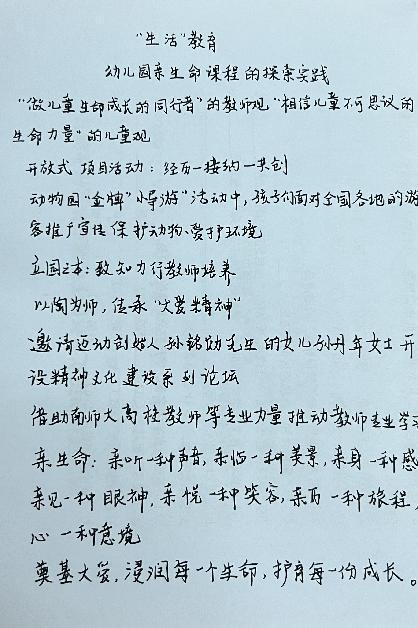 "生活"教育
幼儿园亲生命课程的探索实践
"做儿童生命成长的同行者"的教师观"相信儿童不可思议的
生命力量"的儿童观
开放式项目活动：经历—接纳—共创
动物园"金牌"小导游"活动中，孩子们面对全国各地的游
客推广宣传保护动物、爱护环境
立园之本：致知力行教师培养
以陶为师，传承"大爱精神"
邀请迈动创始人孙铭勋先生的女儿孙丹年女士开
设精神文化建设系列论坛
借助南师大高校教师等专业力量推动教师专业学
亲生命：亲听一种声音，亲临一种美景，亲身一种感
亲见一种眼神，亲悦一种笑容，亲历一种旅程，
心一种意境
奠基大爱，浸润每一个生命，护育每一份成长。